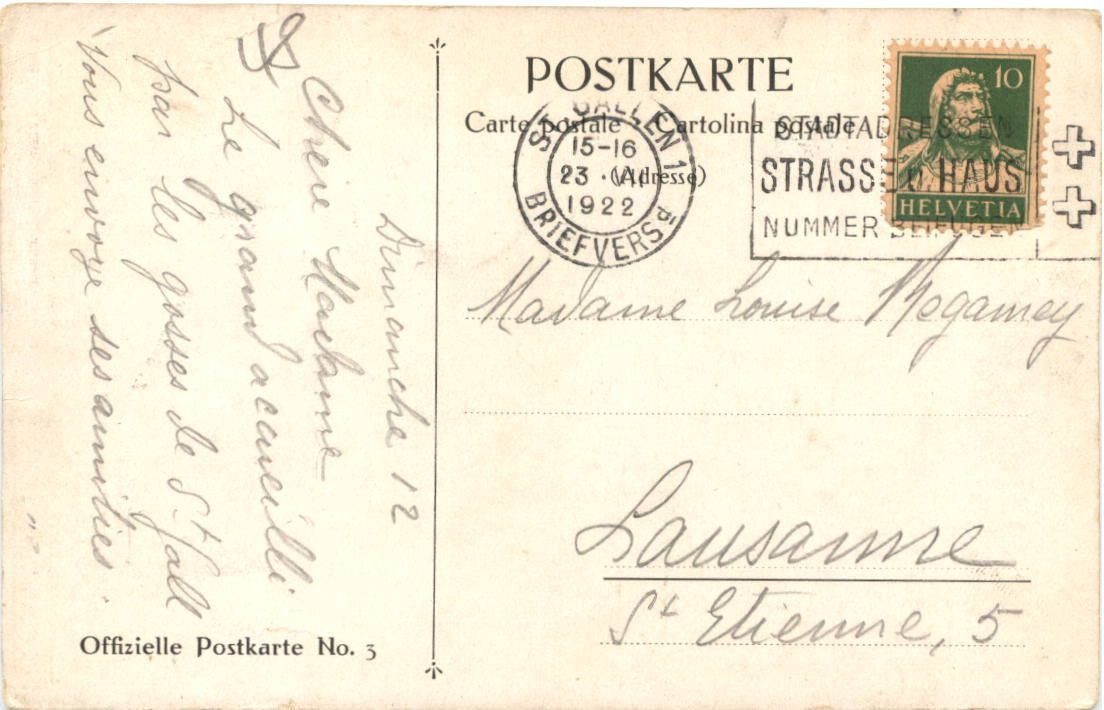 POSTKARTE
Carte postale Cartolina postale
(Adresse)
ST. GALLEN 1
15-16
23 · VII
1922
BRIEFVERSD.
STADTADRESSEN
STRASSE U HAUS
NUMMER BEIFÜGEN
10
HELVETIA
Madame Louise Rogamey
Lausanne
St Etienne, 5
Dimanche 12
Chère Madame
Le grand accueilli
par les gosses de St Gall
Vous envoye ses amitiés.
Offizielle Postkarte No. 3